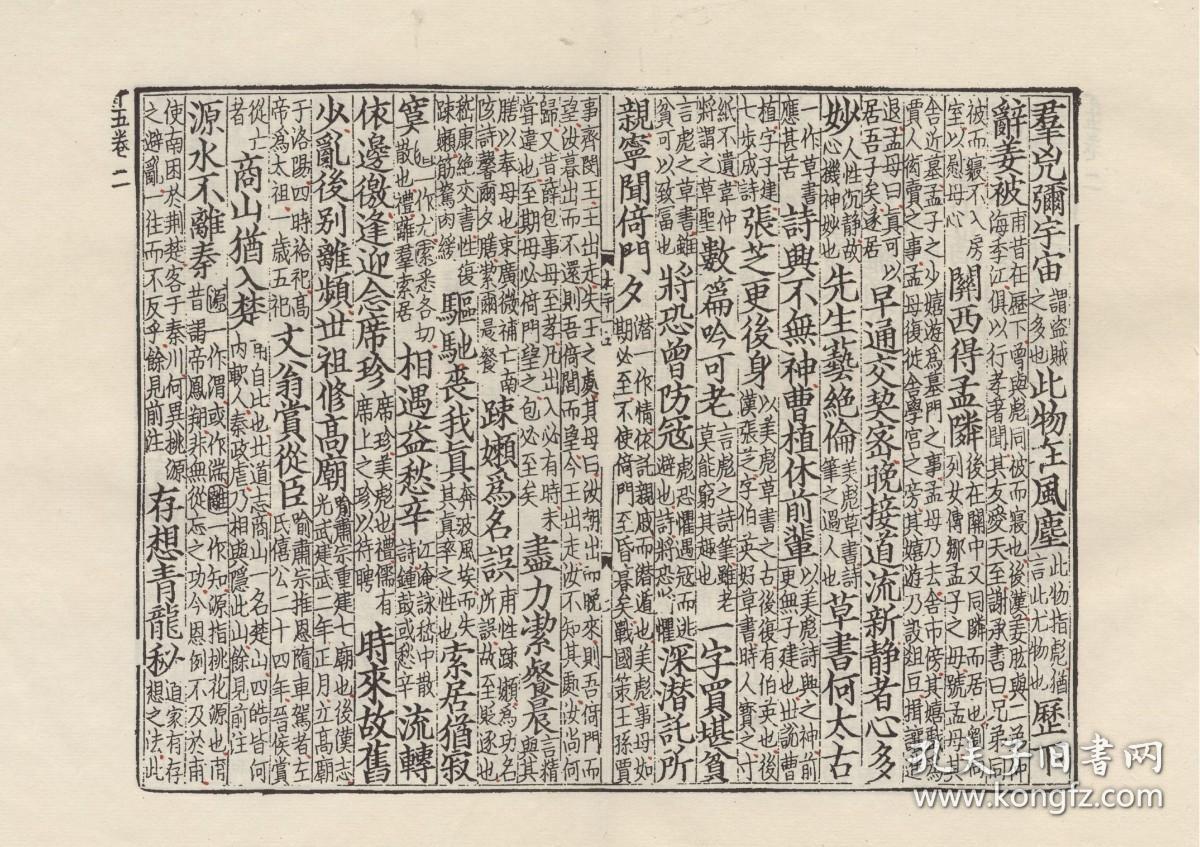 羣兇彌宇宙謂盜賊之多也此物在風塵此物指彪猶言此尤物也歷下
辭姜被甫昔在歷下曾與彪同被而寢也後漢姜肱與二弟仲海季江俱以行孝著聞其友愛天至謝承書曰兄弟同
被而寢不入房室以慰母心關西得孟隣後在關中又同隣而居也劉向列女傳鄒孟子之母號孟母其
舍近墓孟子之少嬉遊為墓門之事孟母乃去舍市傍其嬉戲為賈人衒賣之事孟母復徙舍學宮之旁其嬉遊乃設俎豆揖讓進
退孟母曰真可以居吾子矣遂居早通交契密晚接道流新静者心多
妙人性沉静故心機神妙也先生藝絶倫美彪草書詩筆之過人也草書何太古
一作草書應甚苦詩興不無神曹植休前輩以美彪詩興之神前更無子建也世說曹
植字子建七步成詩張芝更後身以美彪草書之古後復有伯英也後漢張芝字伯英好草書時人寶之寸
紙不遺韋仲將謂之草聖數篇吟可老言彪之詩筆雖老草能窮其趣也一字買堪貧
言彪之草書雖貧可以致富也將恐曾防寇彪恐懼遇寇而逃避也詩將恐將懼深潜託所
親寧聞倚門夕潜一作情依託親戚而潜遁也美彪事母如期必至不使倚門至昏暮矣戰國策王孫賈
事齊閔王王出走失王之處其母曰汝朝出而晚來則吾倚門而望汝暮出而不還則吾倚閭而望今王出走汝不知其處汝尚何
歸又昔薛包事母至孝凡出入必有時未嘗違也至期母必倚門望之包必至矣盡力潔飱晨言精與其
膳以奉母也束廣微補亡南陔詩馨爾夕膳絜爾晨餐疎嬾為名誤甫性疎嬾為功名所誤故至貶逐也
嵇康絶交書性復疎嬾筋駑肉緩驅馳喪我真奔波風埃而失其真率之性也索居猶寂
寞一作尤索悉各切散也禮離羣索居相遇益愁辛江淹詠嵇中散詩鍾鼓或愁辛流轉
依邊徼逢迎念席珍席珍美彪也禮儒有席上之珍以待聘時來故舊
少亂後别離頻世祖修高廟喻肅宗重建七廟也後漢志光武建武二年正月立高廟
于洛陽四時祫祀高帝為太祖一歲五祀文翁賞從臣喻肅宗推恩隨車駕者左氏僖公二十四年晉侯賞
從亡者商山猶入楚自此也世道志商山一名楚山四皓皆何内軹人秦政虐乃相與隱此山餘見前注
源水不離秦源一作渭或作湍離一作知源指桃花源也甫昔謂帝鳳翔非無從亡之功今恩例不及於甫
使南困於荆楚客于秦川何異桃源之避亂一往而不反乎餘見前注存想青龍秘道家有存想之法此
十五卷 二
孔夫子旧书网
www.kongfz.com